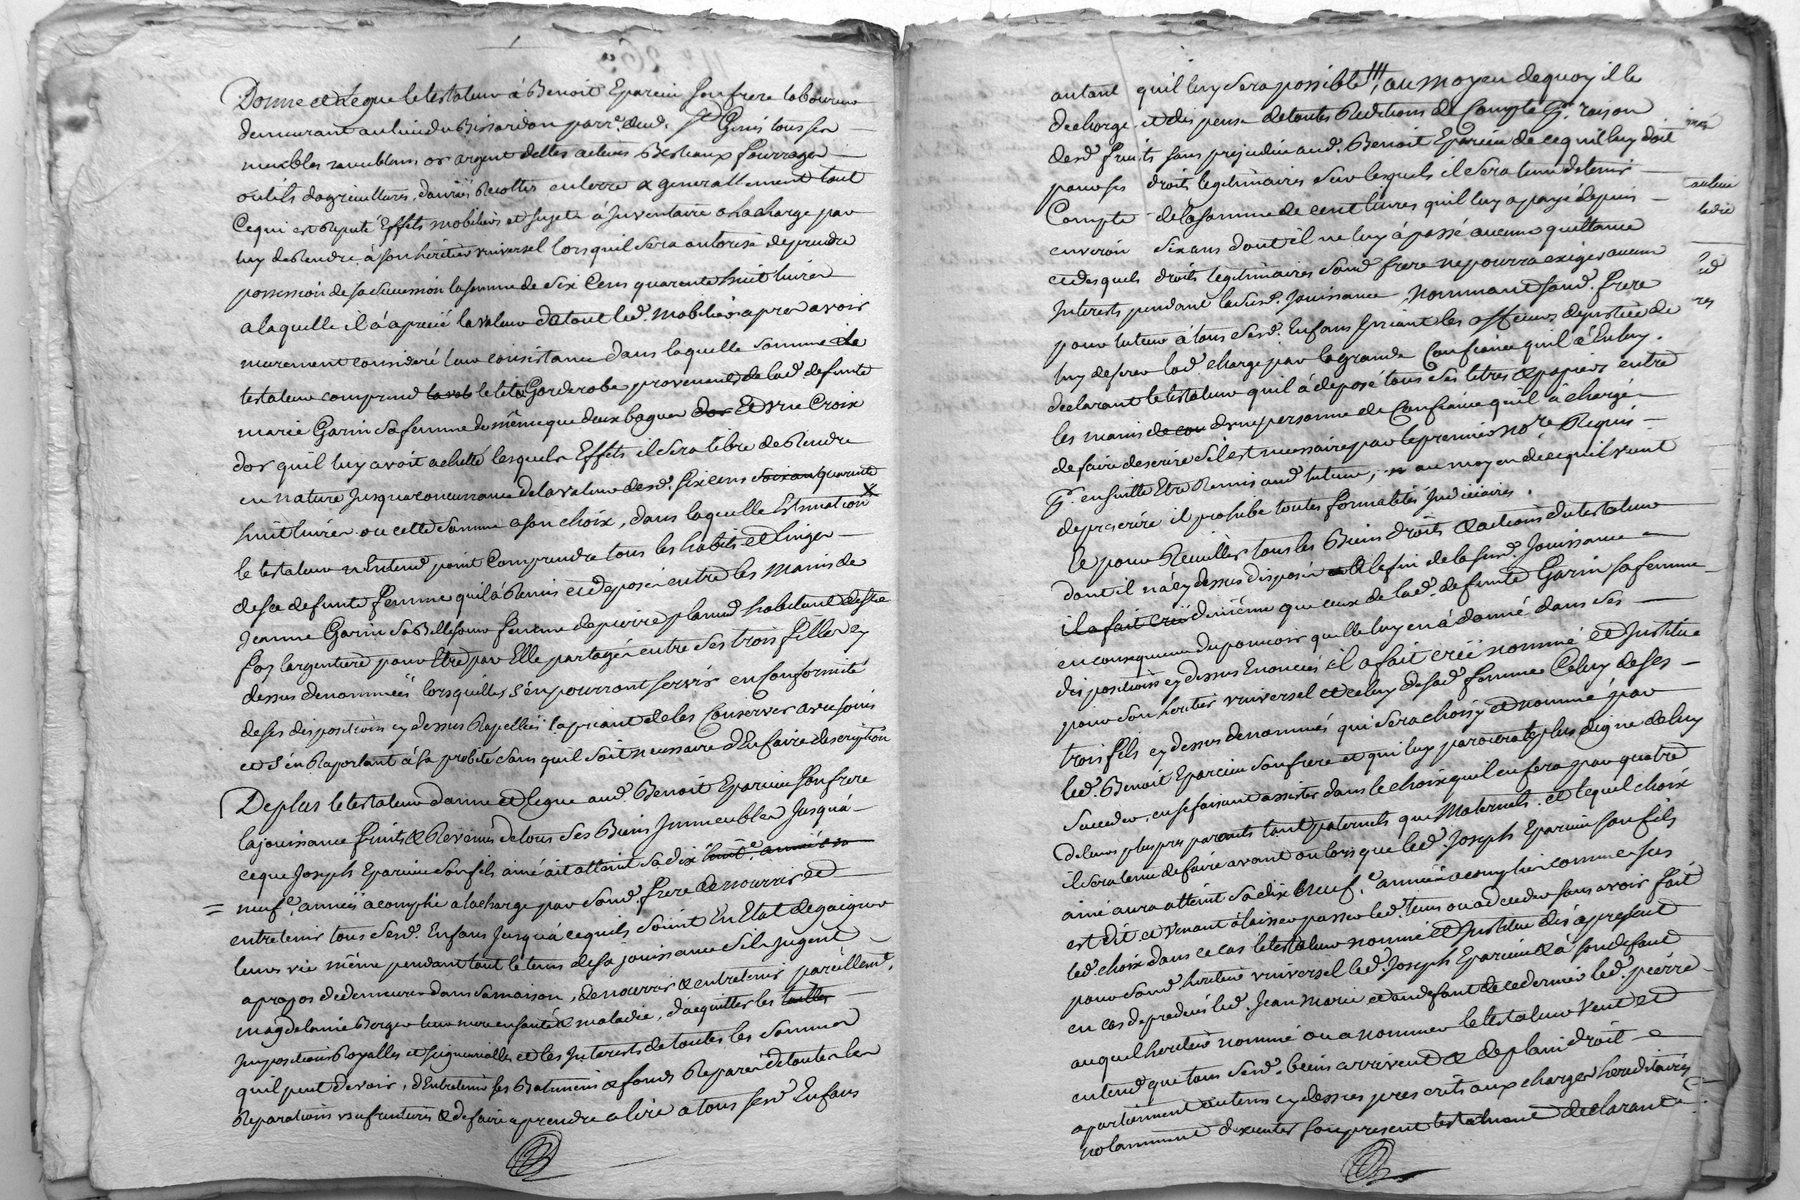 Donne et Legue le testateur à Benoit Eparcieu son frere laboureur
demeurant au lieu du Bissardon parr.e dud. St Genis tous ses
meubles meublans or argent dettes actives Bestiaux fourrages
outils dagricultures, danrées Recoltes en terre & generallement tout
Ce qui est Reputé Effets mobiliers et sujets à Inventaire a la charge par
luy de Rendre à son heritier universel lorsquil sera autorisé de prendre
possession de sa succession la somme de Six Cens quarante huit livres
a laquelle il a aprecié la valeur de tout led. mobilier apres avoir
murement consideré leur consistance dans laquelle somme le
testateur comprend le garderobe provenant de lad. defunte
marie Garin sa femme de même que deux bagues Et une Croix
dor qu'il luy avoit achetté lesquels Effets il sera libre de Rendre
en nature Jusqua concurrance de la valeur desd. six cens soixan quarante
huit livres ou cette somme a son choix, dans laquelle Estimation
le testateur n'Entend point Comprendre tous les habits et linges
de sa defunte femme qu'il a Remis et deposés entre les mains de
Jeanne Garin sa Bellesoeur femme de pierre habitant
largentiere pour Etre par Elle partagés entre ses trois filles cy
dessus denommées lorsquelles s'en pourront servir en Conformité
de ses dispositions cy dessus Rapellées la priant de les Conserver avec soins
et s'en Raportant à sa probité sans quil soit necessaire d'En faire description
De plus le testateur donne et legue aud. Benoit Eparcieu son frere
la jouissance fruits & Revenus de tous ses Biens Immeubles Jusquá
ce que Joseph Eparcieu son fils ainé ait attaint sa dix
= neuf.e année acomplie a la charge par sond. frere de nourrir et
entretenir tous sesd. Enfans Jusquá ce quils soient En Etat de gaigner
leurs vie même pendant tout le tems de sa jouissance s'ils jugent
a propos de demeurer dans sa maison, de nourrir & entretenir pareillem.t
magdelaine Berger leur mere en santé & maladie, d'acquitter les tailles
Impositions Royalles et seigneurialles et les Interests de toutes les sommes
quil peut devoir, d'Entretenir ses Batimens & fonds Reparés de toutes les
Reparations usufruitieres & de faire aprendre a lire a tous sesd. Enfans
autant quil luy sera possible, au moyen dequoy il le
decharge et dispense de toutes Redditions de Compte & raison
desd. fruits sans prejudice aud. Benoit Eparcieu de ce qu'il luy doit
pour ses droits legitimaires sur lesquels il sera tenu de tenir
Compte de la somme de cent livres quil luy a payé depuis
environ six ans dont il ne luy à passé aucune quittance
et desquels droits legitimaires sond. frere ne pourra exiger aucun
Interests pendant lad. Jouissance, nommant sond. frere
pour tuteur à tous sesd. Enfans priant les officiers de justice de
luy deferer lad. charge par la grande Confiance quil à En luy.
declarant le testateur qu'il à deposé tous ses titres & papiers entre
les mains dune personne de Confiance quil à chargée
de faire descrire s'il est necessaire par le premier no.re Requis
& ensuitte Etre Remis aud. tuteur, au moyen de ce qu'il vient
de prescrire il prohibe toutes formalités Judiciaires.
Et pour Recuillir tous les Biens droits & actions du testateur
dont il n'a cy dessus disposés à la fin de lad. Jouissance
il a fait Créé de même que ceux de lad. defunte Garin sa femme
en consequence du pouvoir quelle luy en à donné dans ses
dispositions cy dessus Enoncées il a fait créé nommé et Institué
pour son heritier universel et celuy de sad. femme Celuy de ses
trois fils cy dessus denommés qui sera choisy et nommé par
led. Benoit Eparcieu son frere et qui luy paroitra le plus digne de luy
succeder, en se faisant assister dans le choix quil en fera par quatre
de leurs plus pres parents tant paternels que Maternels. et lequel choix
il sera tenu de faire avant ou lors que led. Joseph Eparcieu son fils
ainé aura atteint sa dix Neuf.e année acomplie comme sus
est dit et venant à laisser passer led. tems ou a deceder sans avoir fait
led. choix dans ce cas le testateur nomme et Institue dès àpresent
pour sond. heritier universel led. Joseph Eparcieu & à son defaut
en cas de predeces led. Jean Marie et au defaut de ce dernier led. pierre
auquel heritier nommé ou a nommer le testateur veut et
entend que tous sesd. biens arrivent & de plein droit
apartiennent au tems cy dessus prescrit aux charges hereditaires
notamment dexecuter son present testament declarant